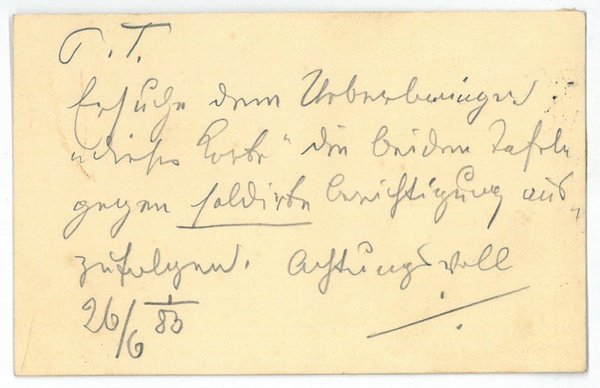 P. T.
Ersuche dem Ueberbringer
„dieser Karte“ die beiden Tafeln
gegen saldirte Berichtigung aus-
zufolgen. Achtungsvoll
26/6 83